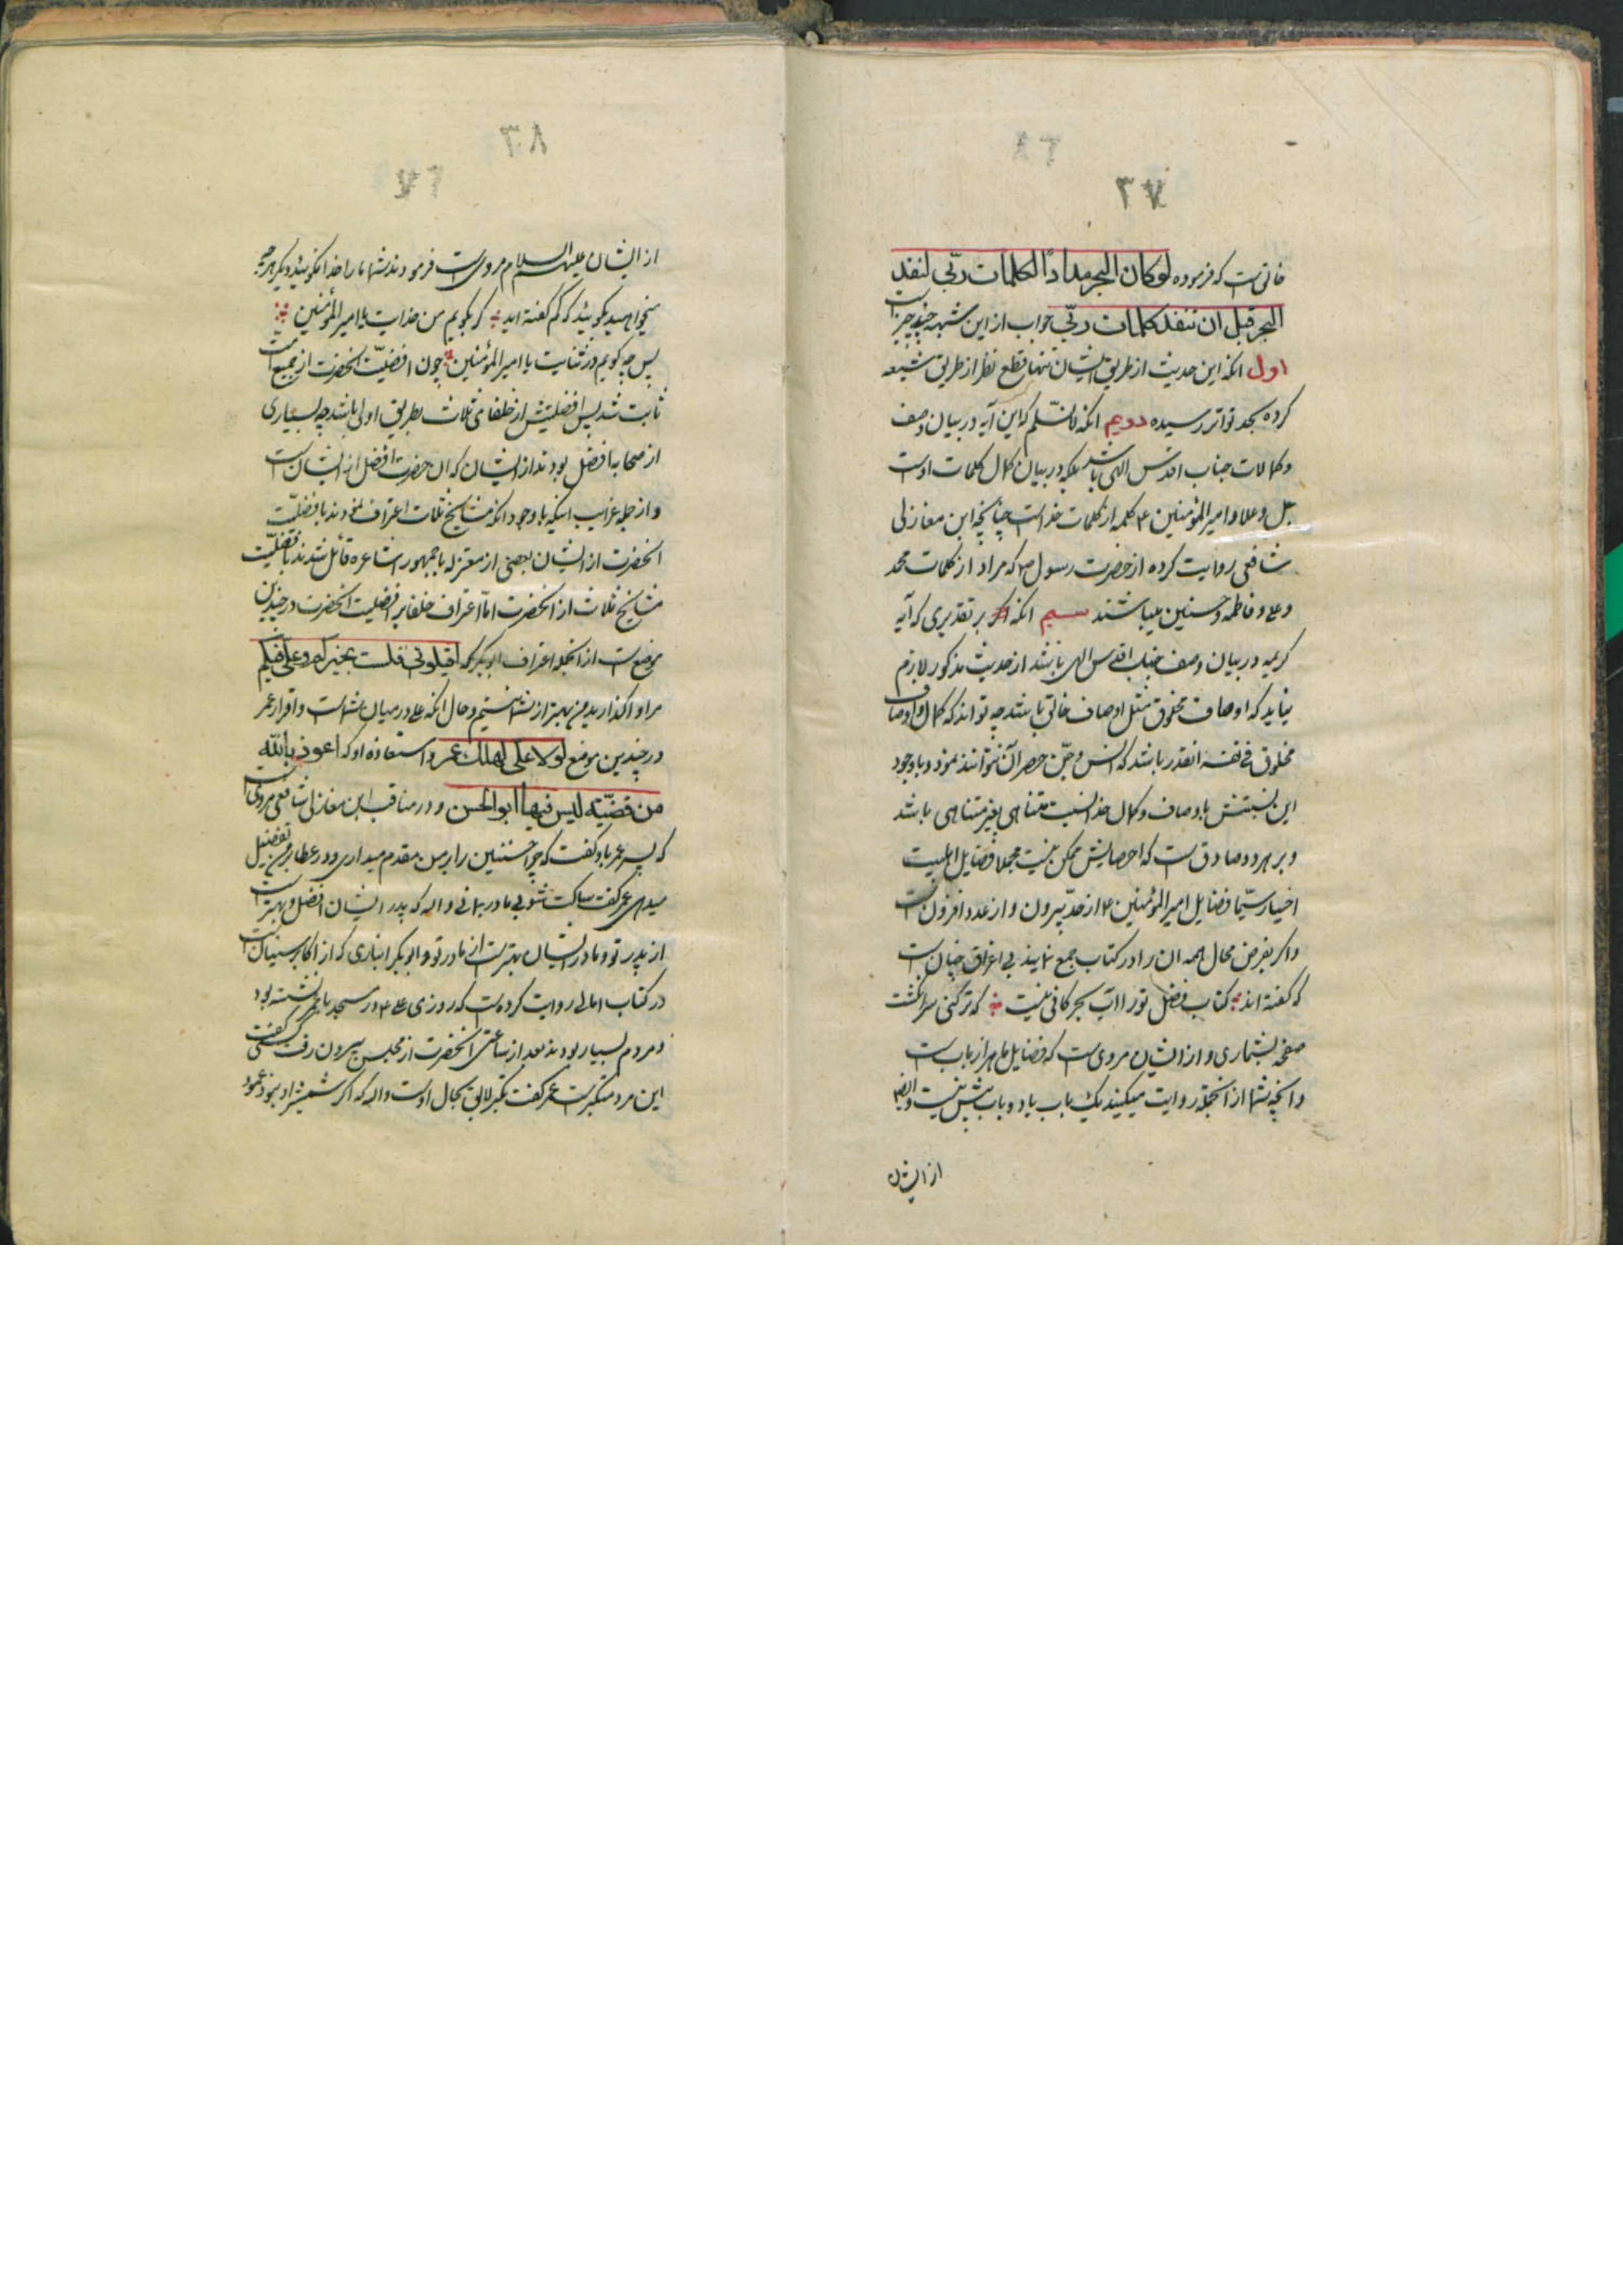 ۳۷
خالق است که فرموده لوکان البحر مدادًا لکلمات ربّی لنفد
البحر قبل ان تنفد کلمات ربّی جواب از این شبهه چند چیز است
اول انکه این حدیث از طریق ایشان تنها قطع نظر از طریق شیعه
کرده بحد تواتر رسیده دویم انکه لانسّلم که این آیه در بیان وصف
وکمالات جناب اقدس الهی باشد بلکه در بیان کمال کلمات اوست
جل وعلا وامیر المؤمنین ۴ کلمه از کلمات خداست چنانچه ابن مغازلی
شافعی روایت کرده از حضرت رسول ص که مراد از کلمات محمد
وعلی وفاطمه وحسنین میباشند سیم انکه بر تقدیری که آیه
کریمه در بیان وصف جناب اقدس الهی باشد از حدیث مذکور لازم
نیاید که اوصاف مخلوق مثل اوصاف خالق باشد چه تواند که کمال واوصاف
مخلوق فی نفسه انقدر باشد که انس وجنّ حصر آن نتوانند نمود وباوجود
این نسبتش باوصاف وکمال خدا نسبت متناهی بغیر متناهی باشد
وبر هردو صادق است که احصایش ممکن نیست مجملا فضایل اهلبیت
اخیار سیّما فضایل امیر المؤمنین ۴ از حدّ بیرون و از عدد افزون است
واکر بفرض محال همه ان را در کتاب جمع نمایند بی اغراق چنان است
که کفته اند کتاب فضل تو را آب بحر کافی نیست که تر کنی سر انکشت
صفحه بشماری و از ایشان مروی است که فضایل ما هزار باب است
وانچه شما از انجمله روایت میکنید یک باب یا دو باب بیش نیست وایضا
از ایشان
۳۸
از ایشان علیهم السلام مروی است فرمودند شما ما را خدا مکوئید ودیکر هر چه
میخواهید بکوئید که کم کفته اید کر بکویم من خدایت یا امیر المؤمنین
پس چه کویم در ثنایت یا امیر المؤمنین چون افضلیّت انحضرت از جمیع امت
ثابت شد پس افضلیتش از خلفای ثلاث بطریق اولی باشد چه بسیاری
از صحابه افضل بودند از ایشان که ان حضرت افضل از ایشان است
و از جمله غرایب اینکه با وجود انکه مشایخ ثلاث اعتراف نمودند بافضلیّت
انحضرت از ایشان بعضی از معتزله با جمهور اشاعره قائل شدند بافضلیّت
مشایخ ثلاث از انحضرت امّا اعتراف خلفا بر افضلیت انحضرت در چندین
موضع است از انجمله اعتراف ابوبکر که اقیلونی فلست بخیرکم وعلی فیکم
مرا واکذارید من بهتر از شما نیستم وحال انکه علی در میان شماست واقرار عمر
در چندین موضع لولا علی لهلک عمر واستعاذه او که اعوذ بالله
من قضیّه لیس فیها ابوالحسن و در مناقب ابن مغازلی شافعی مروی است
که پسر عمر باو کفت که چرا حسنین را بر من مقدم میداری ودر عطا بر من تفضیل
میدهی عمر کفت ساکت شو بی مادر بمانی والله که پدر ایشان افضل وبهتر است
از پدر تو ومادر ایشان بهتر است از مادر تو و ابوبکر انباری که از اکابر سنیان است
در کتاب امالی روایت کرده است که روزی علی ۴ در مسجد با عمر نشسته بود
ومردم بسیار بودند بعد از ساعتی انحضرت از مجلس بیرون رفت کسی کفت
این مرد متکبر است عمر کفت تکبر لایق بحال اوست والله که اکر شمشیر او نبود عمود